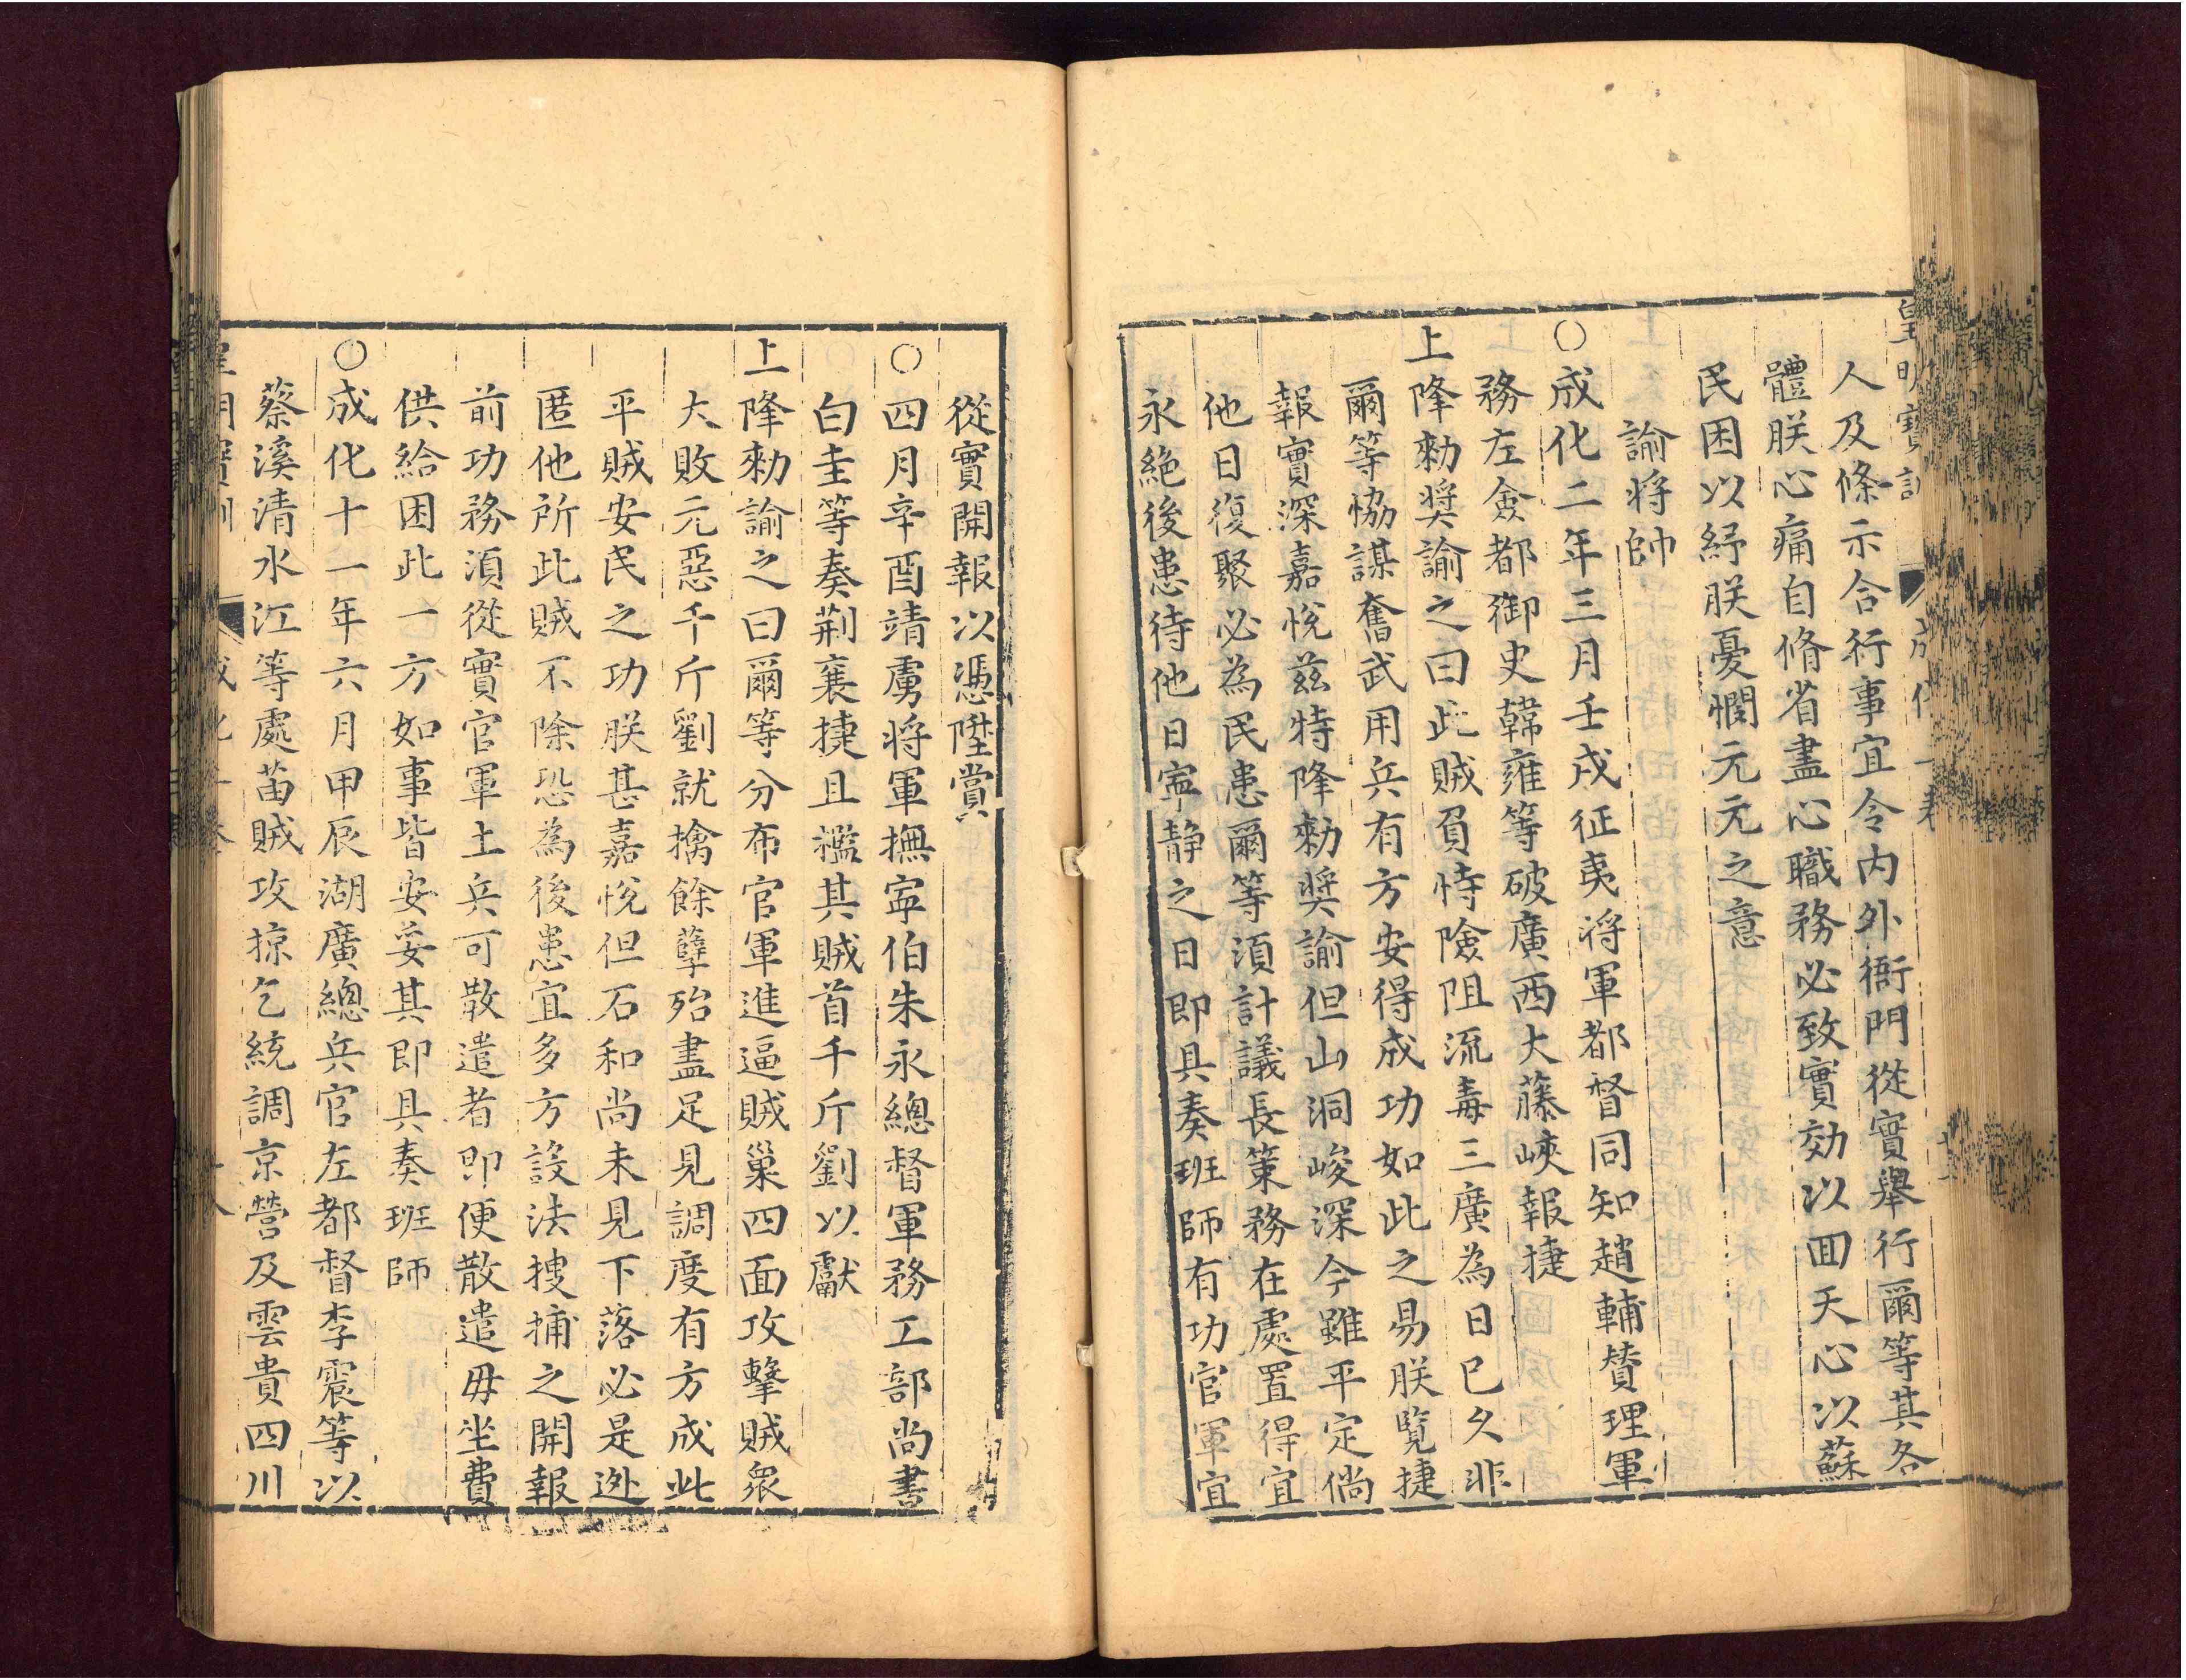 皇明寶訓
人及條示合行事宜令内外衙門從實舉行爾等其各
體朕心痛自脩省盡心職務必致實効以囬天心以蘇
民困以紓朕憂憫元元之意
諭将帥
○成化二年三月壬戌征夷将軍都督同知趙輔賛理軍
務左僉都御史韓雍等破廣西大藤峽報捷
上降勑奨諭之曰此賊負恃險阻流毒三廣為日已久非
爾等恊謀奮武用兵有方安得成功如此之易朕覧捷
報實深嘉悅兹特降勑奨諭但山洞峻深今雖平定倘
他日復聚必為民患爾等湏計議長策務在處置得宜
永絶後患待他日寧静之日即具奏班師有功官軍宜
從實開報以憑陞賞
○四月辛酉靖虜将軍撫寧伯朱永總督軍務工部尚書
白圭等奏荆襄捷且檻其賊首千斤劉以獻
上降勑諭之曰爾等分布官軍進逼賊巢四面攻擊賊衆
大敗元惡千斤劉就擒餘孽殆盡足見調度有方成此
平賊安民之功朕甚嘉悅但石和尚未見下落必是迯
匿他所此賊不除恐為後患宜多方設法捜捕之開報
前功務湏從實官軍土兵可散遣者即便散遣毋坐費
供給困此一方如事皆安妥其即具奏班師
○成化十一年六月甲辰湖廣總兵官左都督李震等以
蔡溪清水江等處苗賊攻掠乞統調京營及雲貴四川